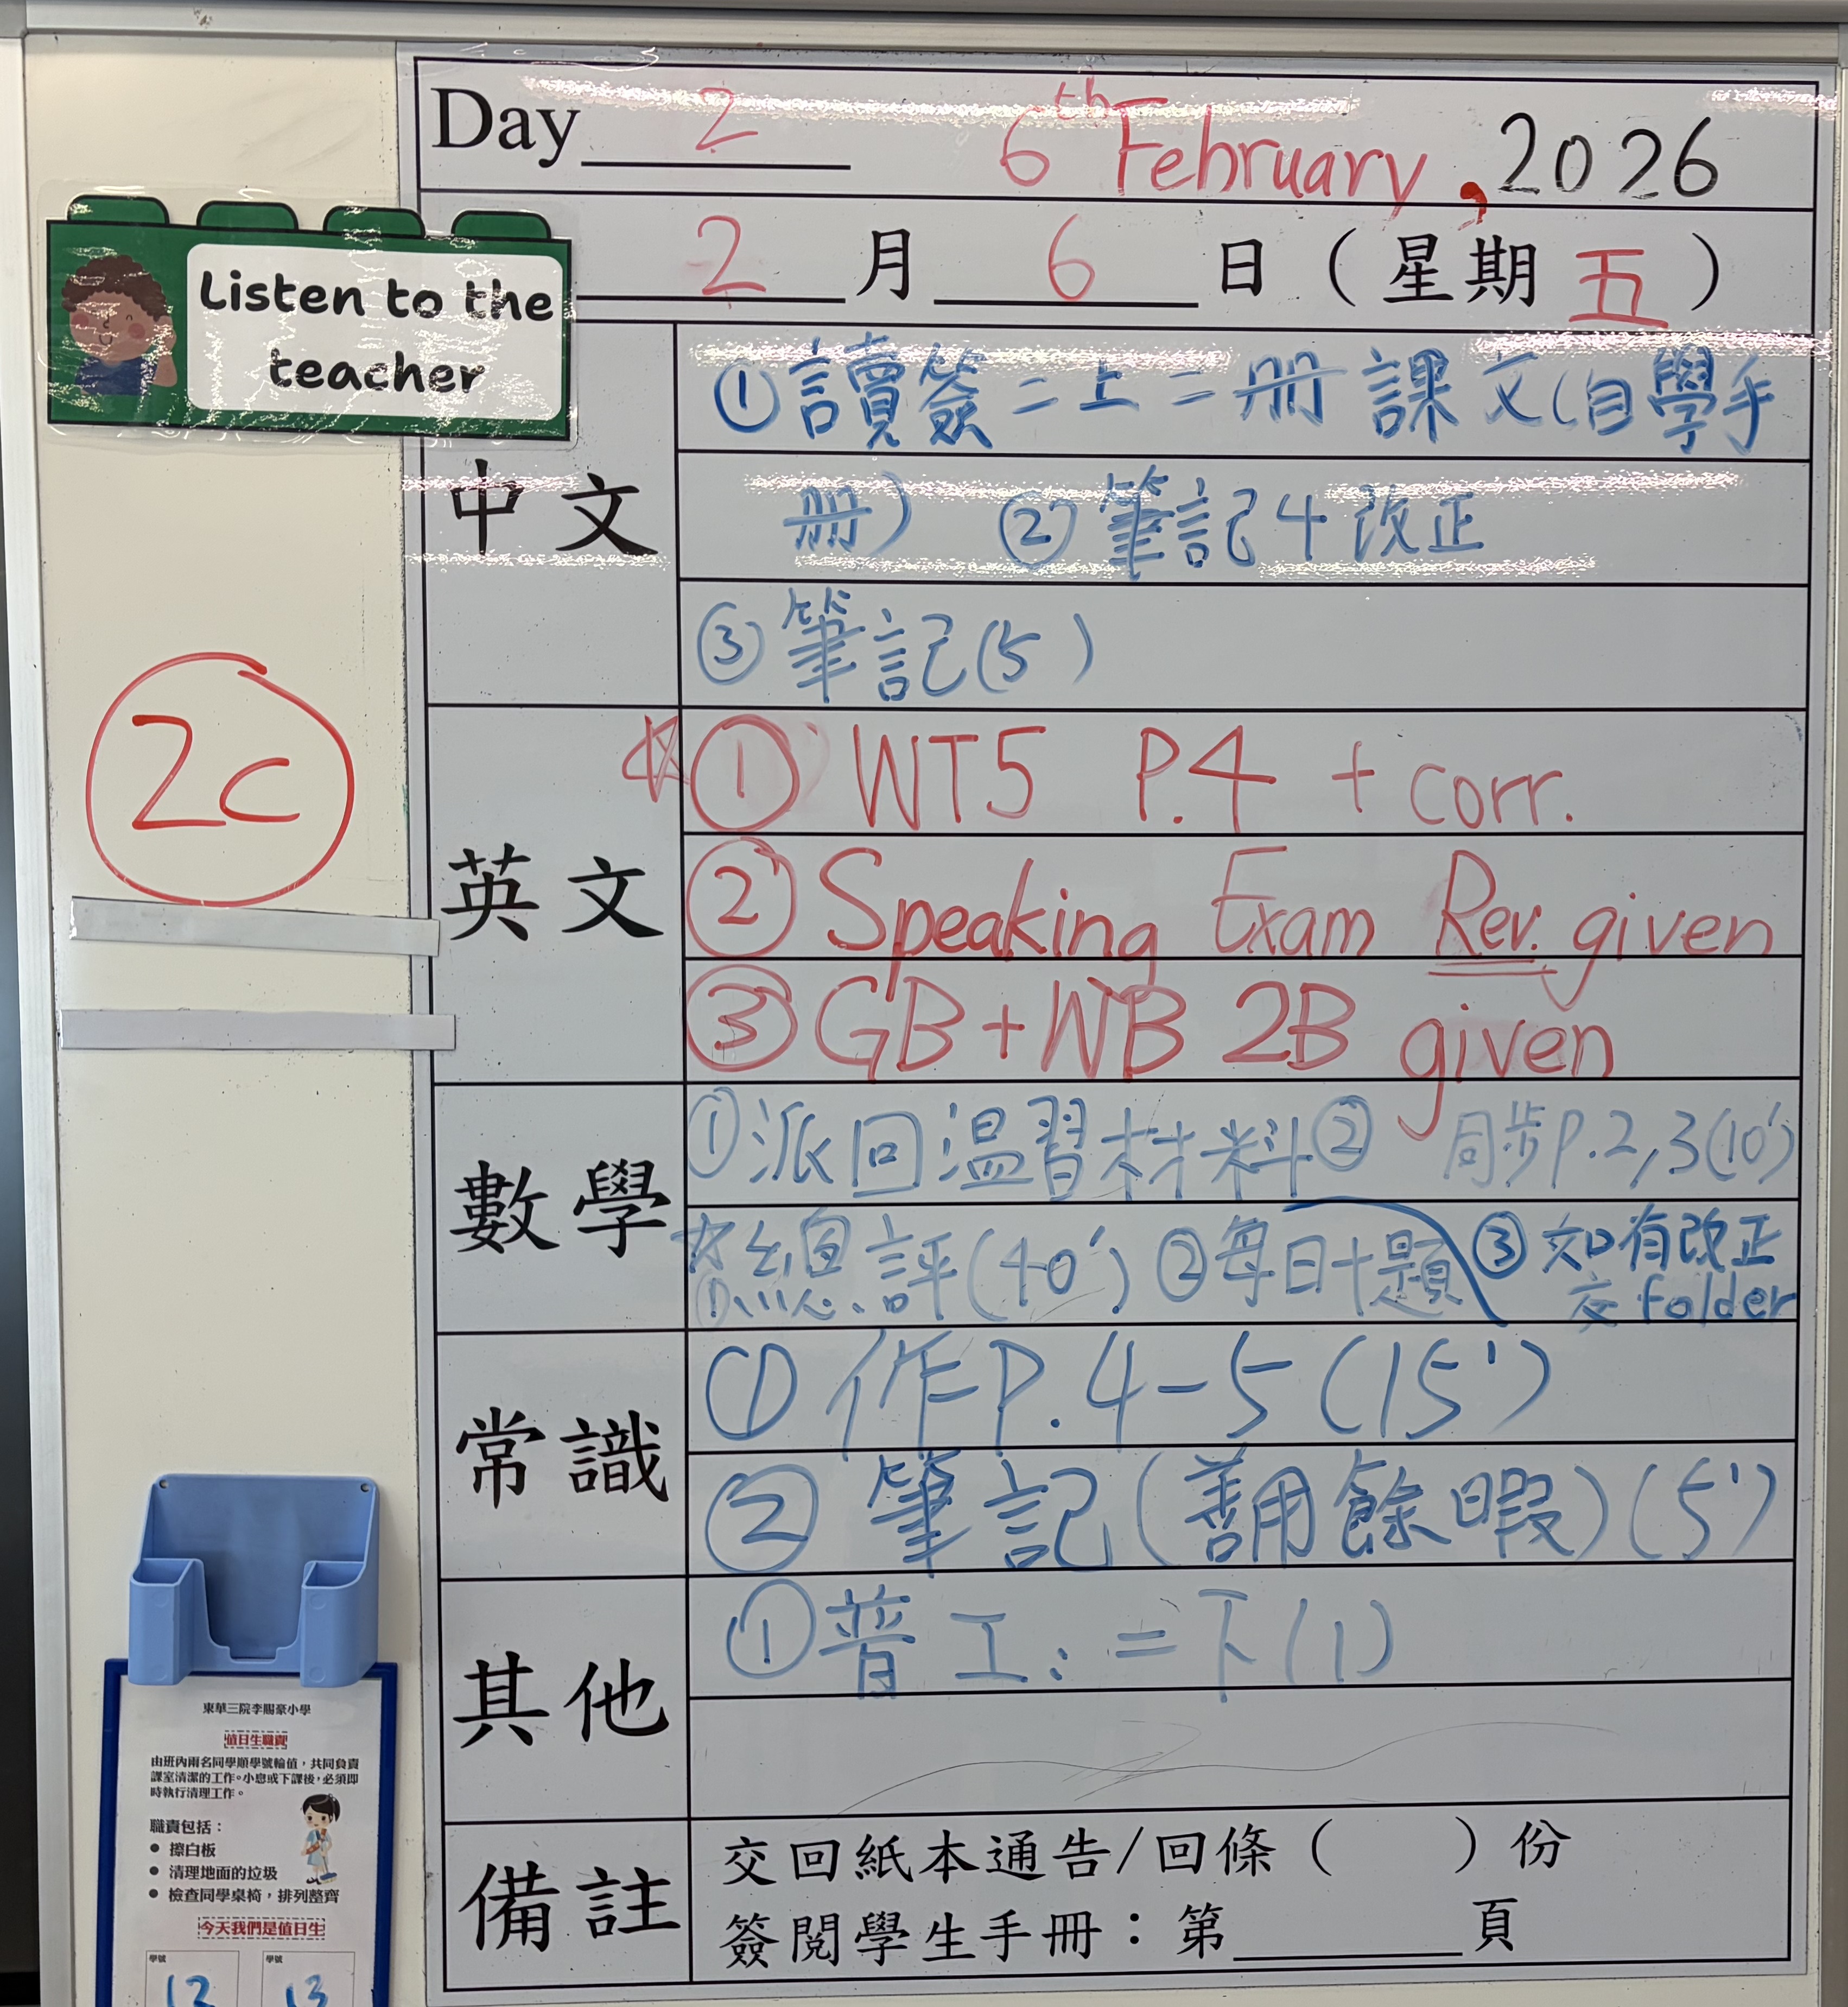 Day 2 6th February, 2026
2 月 6 日 （星期 五）
Listen to the
teacher
中文
①讀簽二上二冊課文(自學手
冊) ②筆記4改正
③筆記(5)
2C
英文
① WT5 P.4 + corr.
② Speaking Exam Rev. given
③ GB+WB 2B given
數學
①派回溫習材料② 同步P.2,3(10')
總評(40') ②每日十題 ③如有改正
交folder
常識
① 作P.4-5(15')
② 筆記(善用餘暇)(5')
其他
①普工：二下(1)
備註
交回紙本通告/回條（ ）份
簽閱學生手冊：第 頁
東華三院李賜豪小學
值日生職責
由班內兩名同學順學號輪值，共同負責
課室清潔的工作。小息或下課後，必須即
時執行清理工作。
職責包括：
● 擦白板
● 清理地面的垃圾
● 檢查同學桌椅，排列整齊
今天我們是值日生
學號 學號
12 13